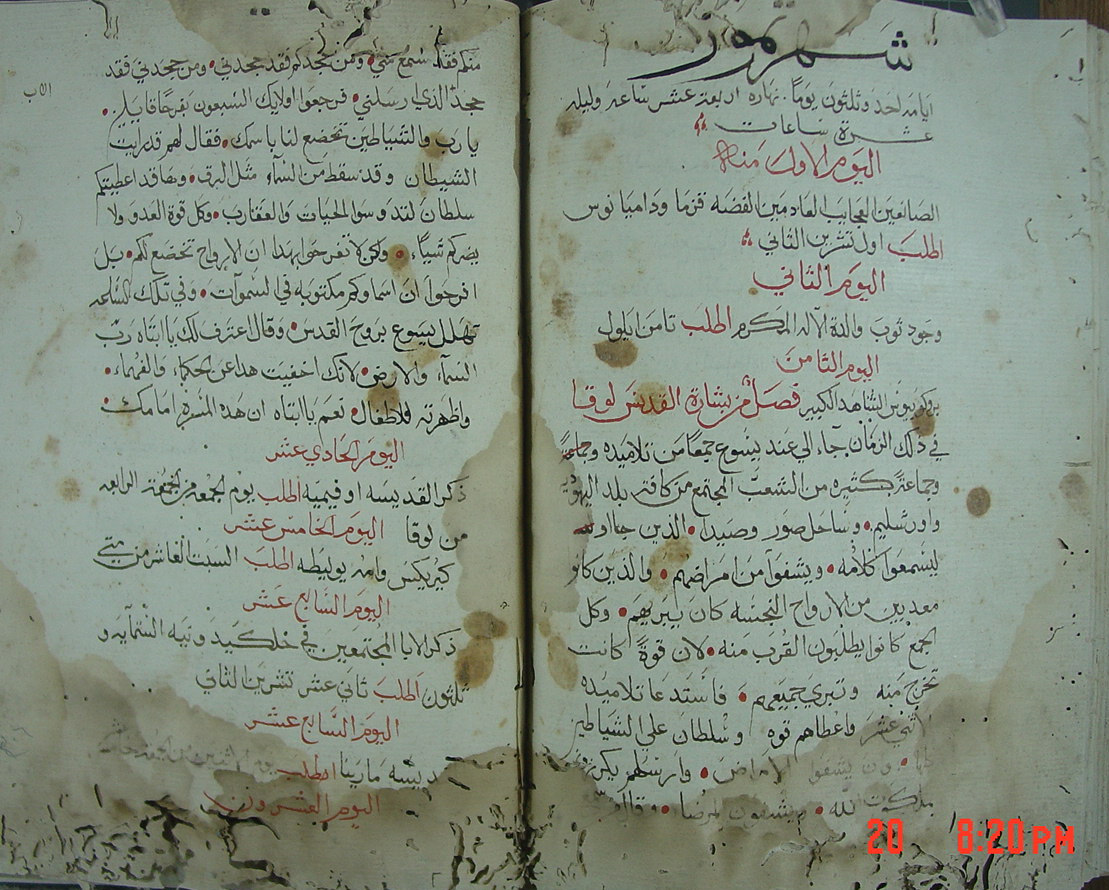 شهر تموز
ايامه احد وثلثون يومًا. نهاره اربعة عشر ساعه وليله
عشرة ساعات
اليوم الاول منه
الصانعين العجايب العادمين الفضه قزما وداميانوس
اطلب اول تشرين الثاني
اليوم الثاني
وجود ثوب والدة الاله المكرم اطلب ثامن ايلول
اليوم الثامن
بروكوبيوس الشاهد الكبير فصل من بشارة القديس لوقا
في ذلك الزمان جاء الي عند يسوع جمعًا من تلاميذه وجماعةً
وجماعةً كثيره من الشعب المجتمع من كافة بلد اليهوديه
واورشليم. وساحل صور وصيدا. الذين جااو
ليسمعوا كلامه. ويشفوا من امراضهم. والذين كانو
معذبين من الارواح النجسه كان يبريهم. وكل
الجمع كانوا يطلبون القرب منه. لان قوةً كانت
تخرج منه وتبري جميعهم. فاستدعا تلاميذه
الاثني عشر واعطاهم قوه وسلطان علي الشياطين
وان يشفوا الامراض. وارسلهم يكرزون
ملكوت الله. ويشفون المرضا. وقال
منكم فقد سمع مني. ومن جحدكم فقد جحدني. ومن جحدني فقد
جحد الذي ارسلني. فرجعوا اولايك السبعون بفرحًا قايلين.
الاب
يا رب والشياطين تخضع لنا باسمك. فقال لهم قد رايت
الشيطان وقد سقط من السماء مثل البرق. وهاقد اعطيتكم
سلطان لتدوسوا الحيات والعقارب. وكل قوة العدو ولا
يضركم شياء. ولكن لا تفرحوا بهذا ان الارواح تخضع لكم. بل
افرحوا ان اسماوكم مكتوبه في السموات. وفي تلك الساعه
تهلل يسوع بروح القدس. وقال اعترف لك يا ابتاه رب
السماء والارض. لانك اخفيت هذا عن الحكماء والفهماء.
واظهرته للاطفال. نعم يا ابتاه ان هذه المسرة امامك.
اليوم الحادي عشر
ذكر القديسه اوفيميه اطلب يوم الجمعه من الجمعة الرابعه
من لوقا اليوم الخامس عشر
كيريكس وامه يوليطه اطلب السبت العاشر من متي
اليوم السابع عشر
ذكر الابا المجتمعين في خلكيدونيه الستمايه و
ثلثون اطلب ثاني عشر تشرين الثاني
اليوم السابع عشر
القديسه مارينا اطلب يوم الاثنين من الجمعه
اليوم العشرون
20 8:20 PM